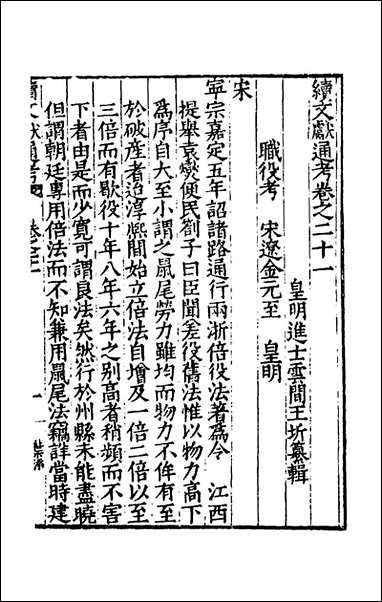 續文獻通考卷之二十一
皇明進士雲間王圻纂輯
職役考 宋遼金元至 皇明
宋
寧宗嘉定五年詔諸路通行兩浙倍役法著爲令 江西
提舉袁燮便民劄子曰臣聞差役舊法惟以物力高下
爲序自大至小謂之鼠尾勞力雖均而物力不侔有至
於破産者迨淳熈間始立倍法自增及一倍二倍以至
三倍而有歇役十年八年六年之别高者稍頻而不害
下者由是而少寛可謂良法矣然行於州縣未能盡曉
但謂朝廷専用倍法而不知兼用鼠尾法竊詳當時建
續文獻通考 卷之二十一 一